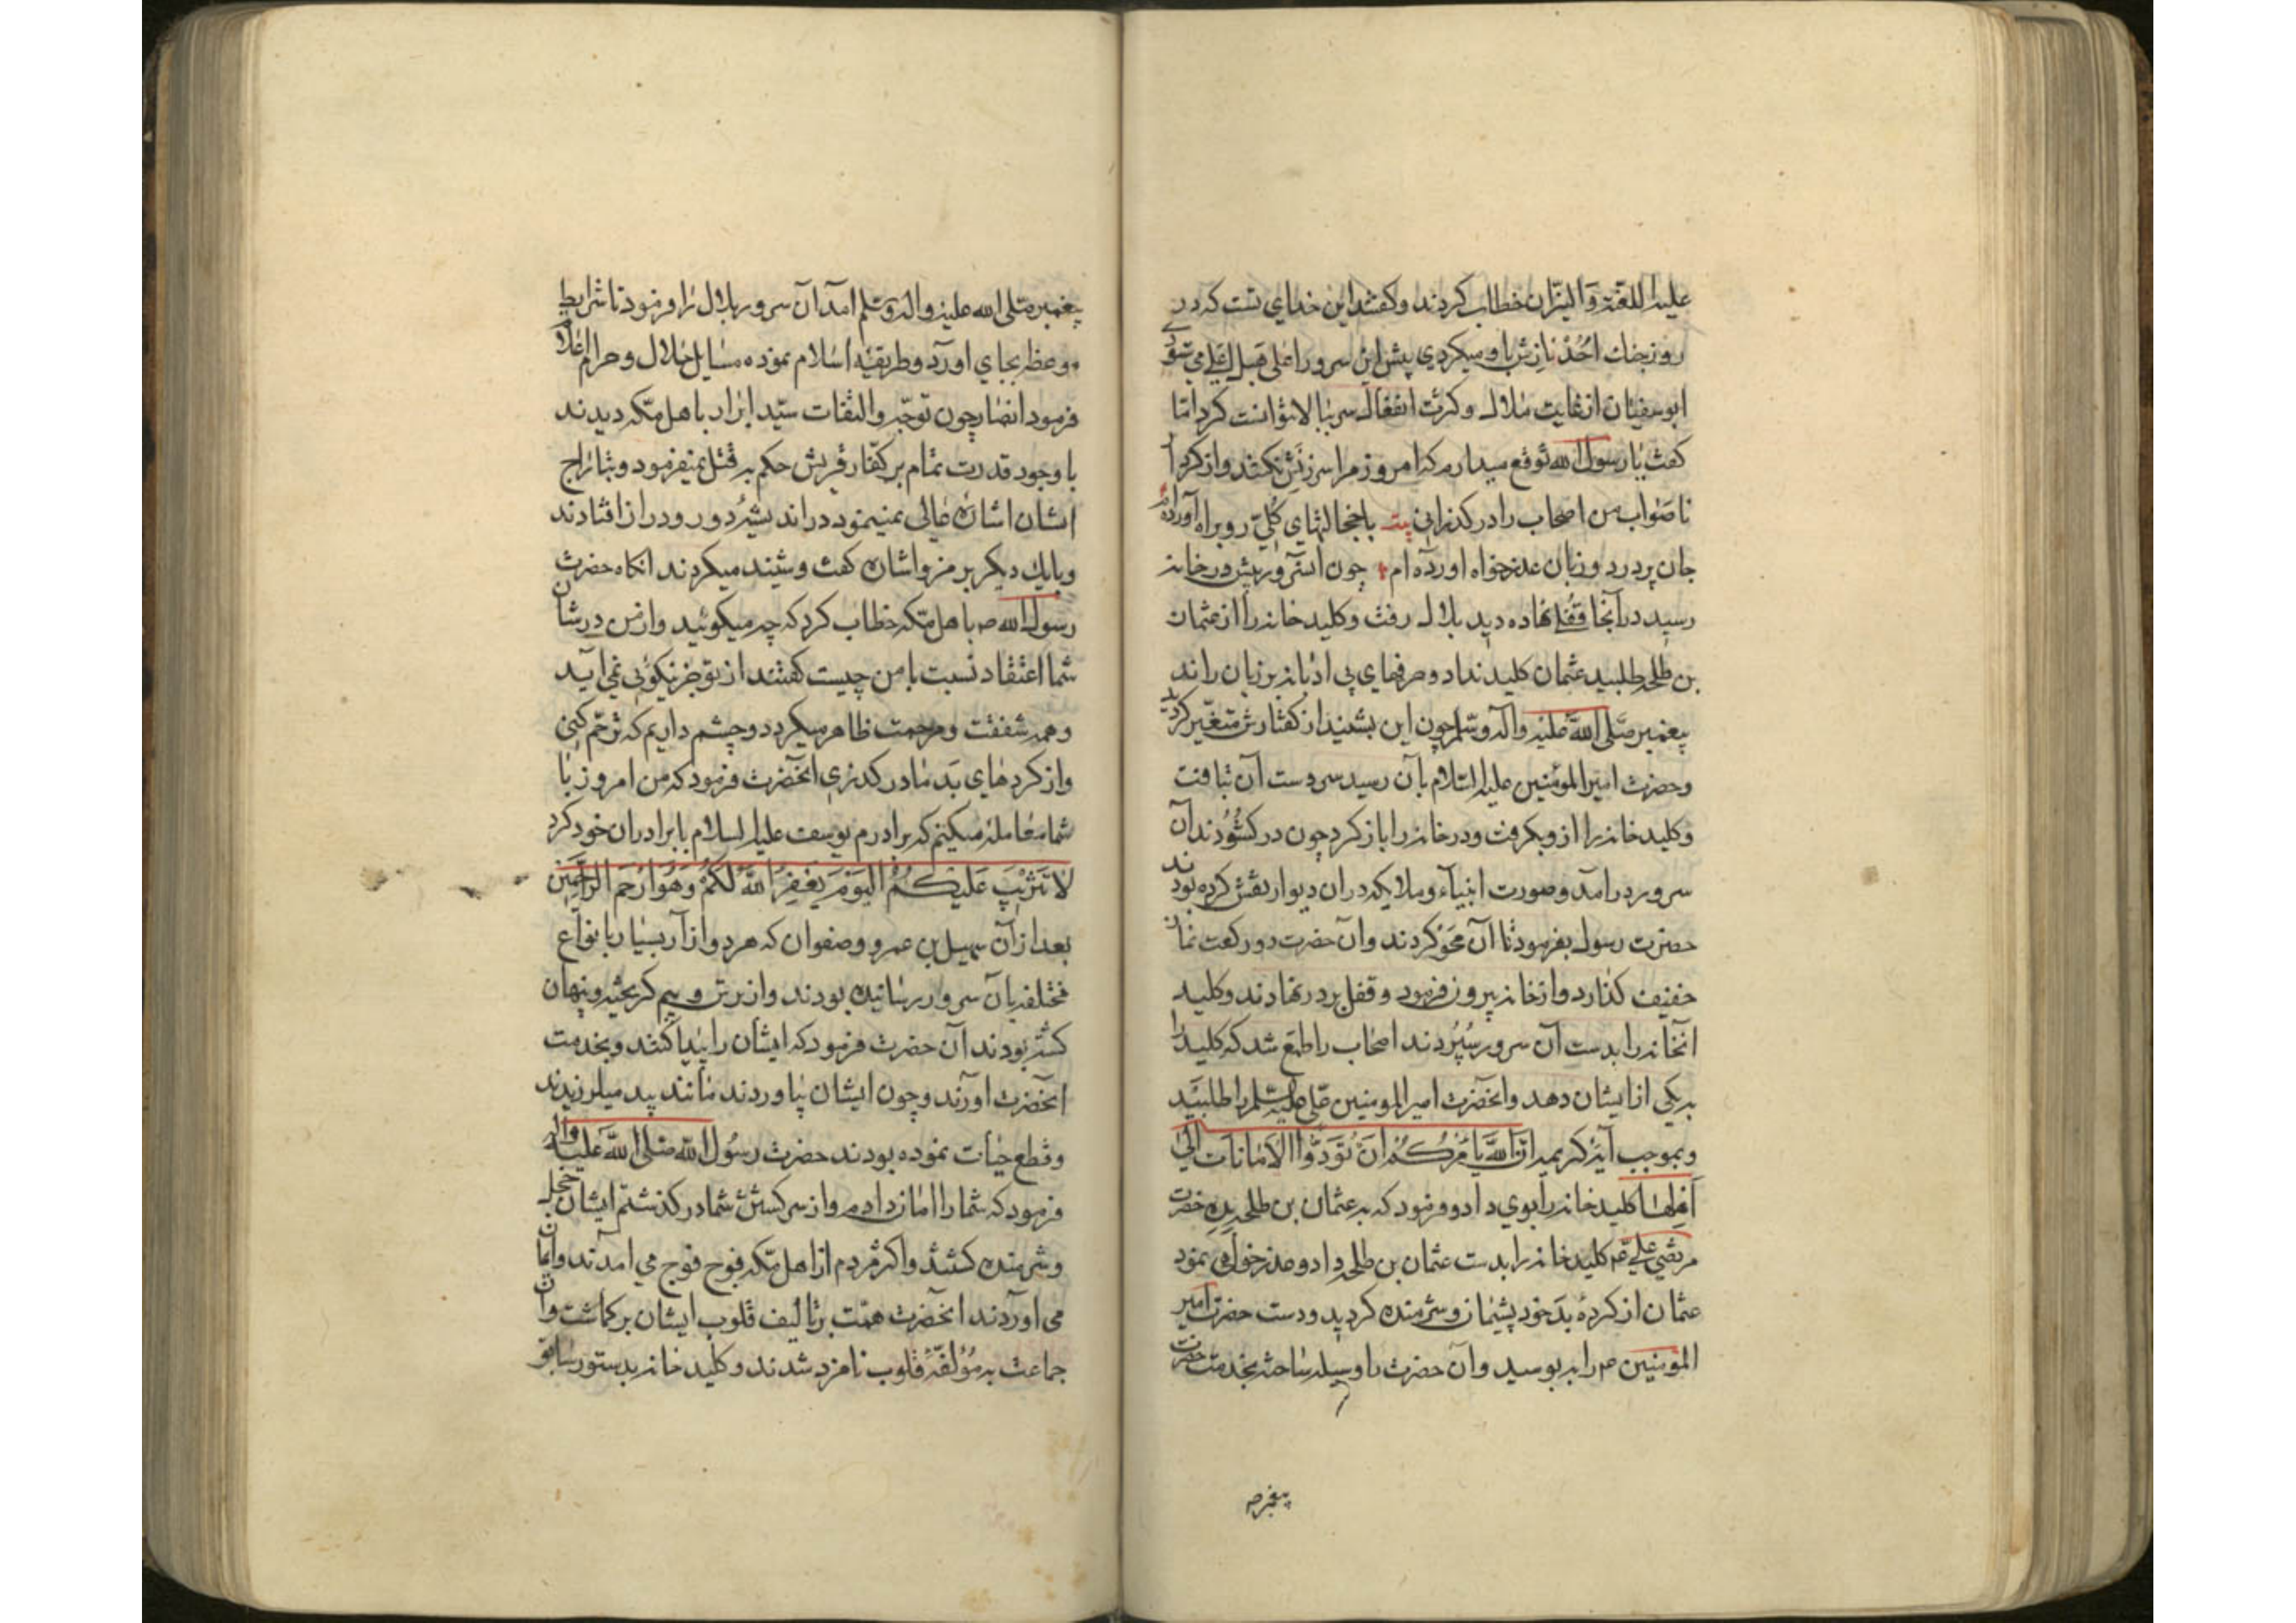 علیه اللعنة والنیران خطاب کردند و گفتند این خدای تست که در
روز جنك احُد نازش باو میکردی پیش این سرور اعلی هبل اعلی می شوی
ابوسفیان از غایت ملال و کثرت انفعال سر ببالا نتوانست کرد امّا
کفت یا رسول الله توقع میدارم که امروز مرا سرزنش نکنند و از کردهٔ
ناصواب من اصحاب را در کذرانی بیت با خجالتهای کلّی رو براه آورده ام
جان پر درد و زبان عذرخواه آورده ام چون آنسرور پیش در خانه
رسید در آنجا قفل نهاده دید بلال رفت و کلید خانه را از عثمان
بن طلحه طلبید عثمان کلید نداد و حرفهای بی ادبانه بر زبان راند
پیغمبر صلّی الله علیه وآله وسلم چون این بشنید از کفتارش متغیّر کردید
وحضرت امیر المؤمنین علیه السلام بآن رسید سر دست آن بتافت
و کلید خانه را ازو بکرفت و در خانه را باز کرد چون در کشُودند آن
سرور درآمد و صورت انبیآء و ملایکه در ان دیوار نقش کرده بودند
حضرت رسول بفرمود تا آن محَو کردند و آن حضرت دو رکعت نماز
خفیف کذارد و از خانه بیرون فرمود و قفل بر در نهادند و کلید
آنخانه را بدست آن سرور سپُردند اصحاب را طمع شد که کلید را
به یکی از ایشان دهد و آنحضرت امیر المومنین علی علیه السلم را طلبید
و بموجب آیهٔ کریمه انّ الله یأمرکم ان تؤدّوا الامانات الی
اهلها کلید خانه را بوی داد و فرمود که به عثمان بن طلحه بده حضرت
مرتضی علی ع م کلید خانه را بدست عثمان بن طلحه داد و عذرخواهی نمود
عثمان از کردهٔ بد خود پشیمان و شرمنده کردید و دست حضرت امیر
المؤمنین ع م را به بوسید و آن حضرت را وسیله ساخته بخدمت حضرت
پیغمبر ص
پیغمبر صلی الله علیه واله وسلم آمد آن سرور بلال را فرمود تا شرایط
وعظ بجای آورد و طریقه اسلام نموده مسایل حلال و حرام اعلام
فرمود انصار چون توجّه و التفات سیّد ابرار باهل مکّه دیدند
با وجود قدرت تمام بر کفّار قریش حکم به قتل نمیفرمود و بتاراج
ایشان اشارهٔ عالی نمینمود در اندیشهٔ دور و دراز افتادند
و بایك دیکر برمز و اشاره کفت و شنید میکردند انکاه حضرت
رسول الله ص باهل مکّه خطاب کرد که چه میکوئید و از من در شان
شما اعتقاد نسبت با من چیست کفتند از تو جز نیکوئی نمی آید
و همه شفقت و مرحمت ظاهر میکردد و چشم داریم که ترحّم کنی
و از کردهای بد ما در کذری آنحضرت فرمود که من امروز با
شما معامله میکنم که برادرم یوسف علیه السلام با برادران خود کرد
لا تثریب علیکم الیوم یغفر الله لکم وهو ارحم الراحمین
بعد از آن سهیل بن عمرو و صفوان که هر دو آزار بسیار با نواع
مختلفه بآن سرور رسانیده بودند و از ترس و بیم کریخته و پنهان
کشته بودند آن حضرت فرمود که ایشان را پیدا کنند و بخدمت
آنحضرت آورند و چون ایشان بیاوردند مانند بید میلرزیدند
و قطع حیات نموده بودند حضرت رسُول الله صلی الله علیه واله
فرمود که شما را امان دادم و از سرکشی شما در کذشتم ایشان خجل
و شرمنده کشتند و اکثر مردم از اهل مکّه فوج فوج می آمدند و ایمان
می آوردند آنحضرت همّت بر تالیف قلوب ایشان بر کماشت و آن
جماعت به مؤلّفهٔ قلوب نامزد شدند و کلید خانه بدستور سابق